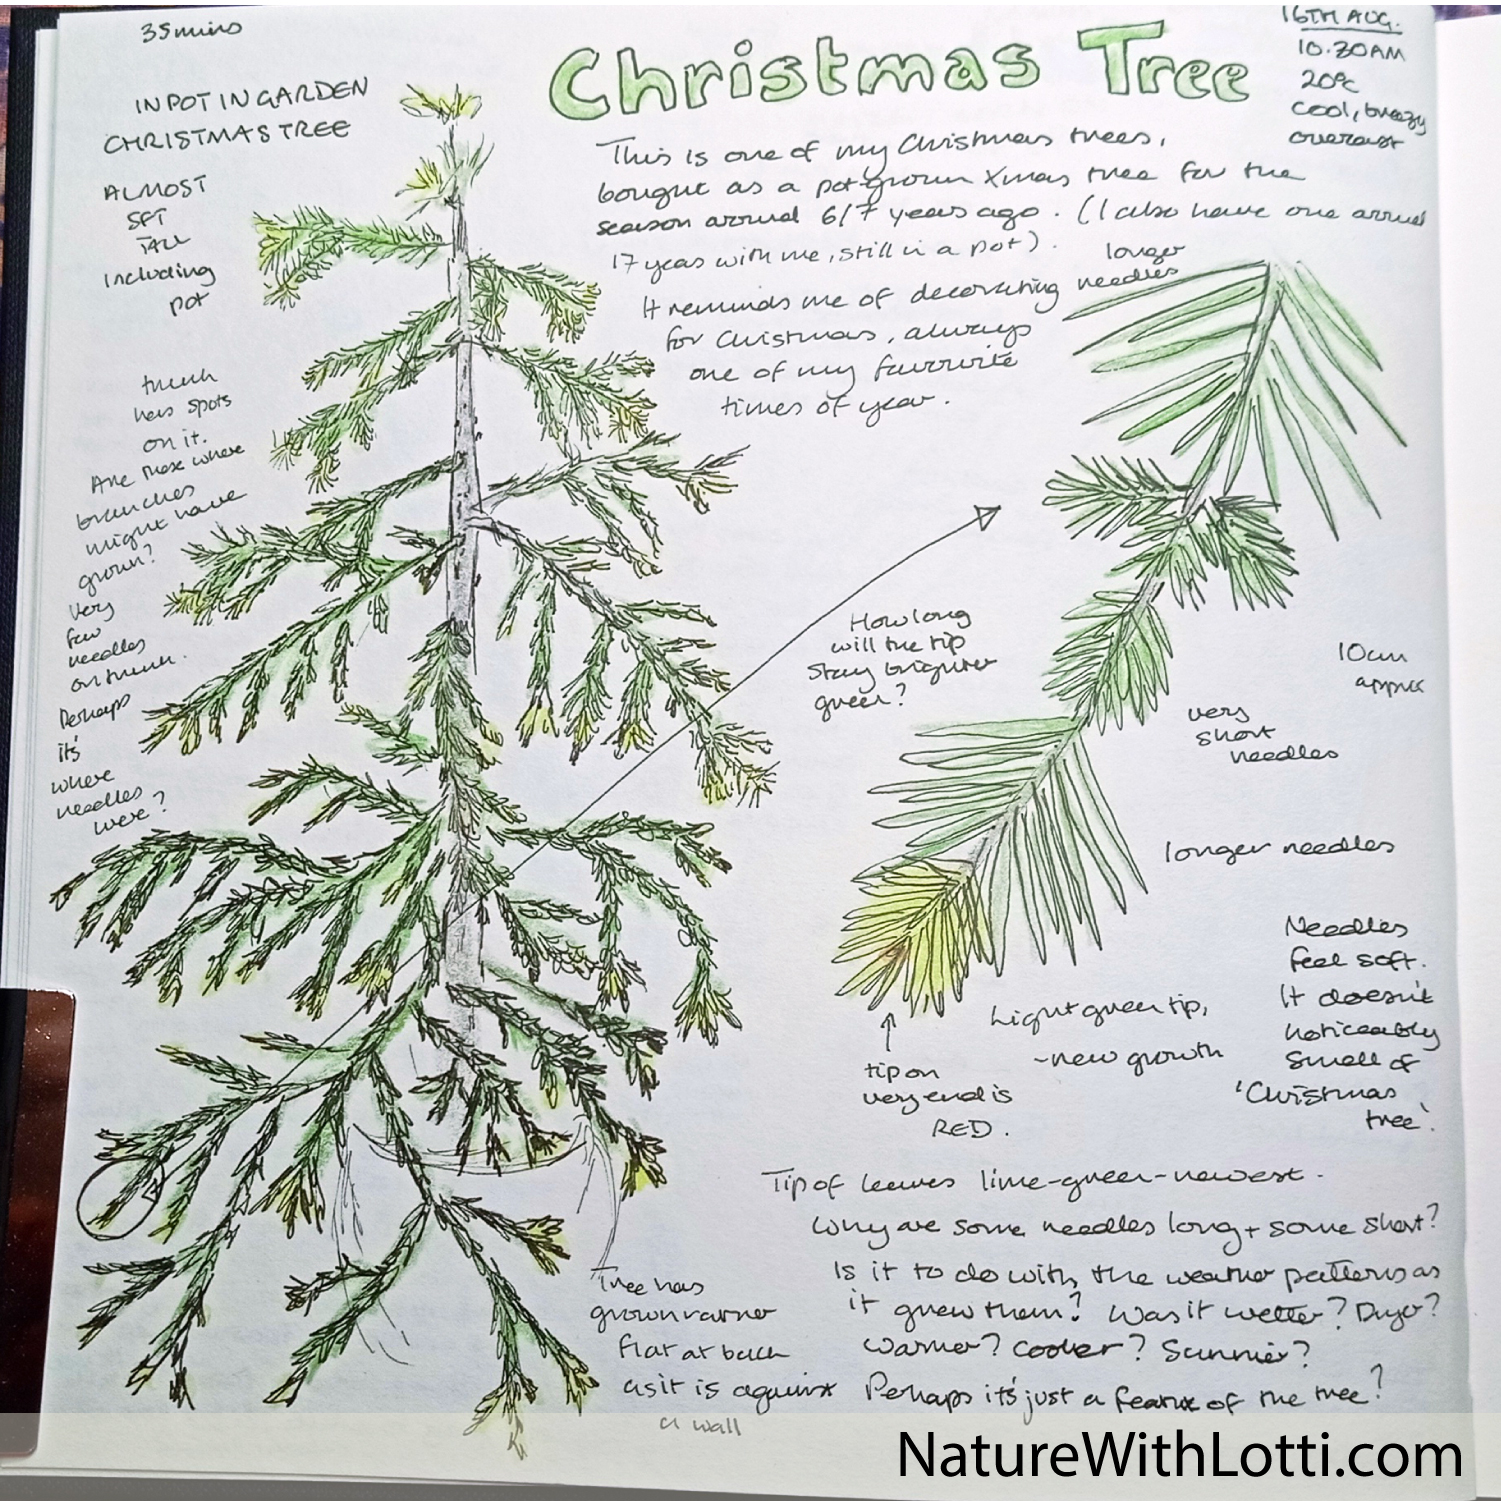 35mins
IN POT IN GARDEN
CHRISTMAS TREE
ALMOST
5FT
TALL
including
pot
Christmas Tree
16TH AUG.
10.30AM
20°C
cool, breezy
overcast
This is one of my Christmas trees,
bought as a pot-grown Xmas tree for the
season around 6/7 years ago. (I also have one around
17 years with me, still in a pot).
It reminds me of decorating
for Christmas, always
one of my favourite
times of year.
trunk
has spots
on it.
Are these where
branches
might have
grown?
Very
few
needles
on trunk.
Perhaps
it's
where
needles
were?
longer
needles
How long
will the tip
stay brighter
green?
10cm
approx
very
short
needles
longer needles
Needles
feel soft.
It doesn't
noticeably
smell of
'Christmas
tree'.
Light green tip,
-new growth
tip on
very end is
RED.
Tip of leaves lime-green-newest.
Why are some needles long + some short?
Is it to do with the weather patterns as
it grew them? Was it wetter? Dryer?
Warmer? Cooler? Sunnier?
Perhaps it's just a feature of the tree?
Tree has
grown rather
flat at back
as it is against
a wall
NatureWithLotti.com